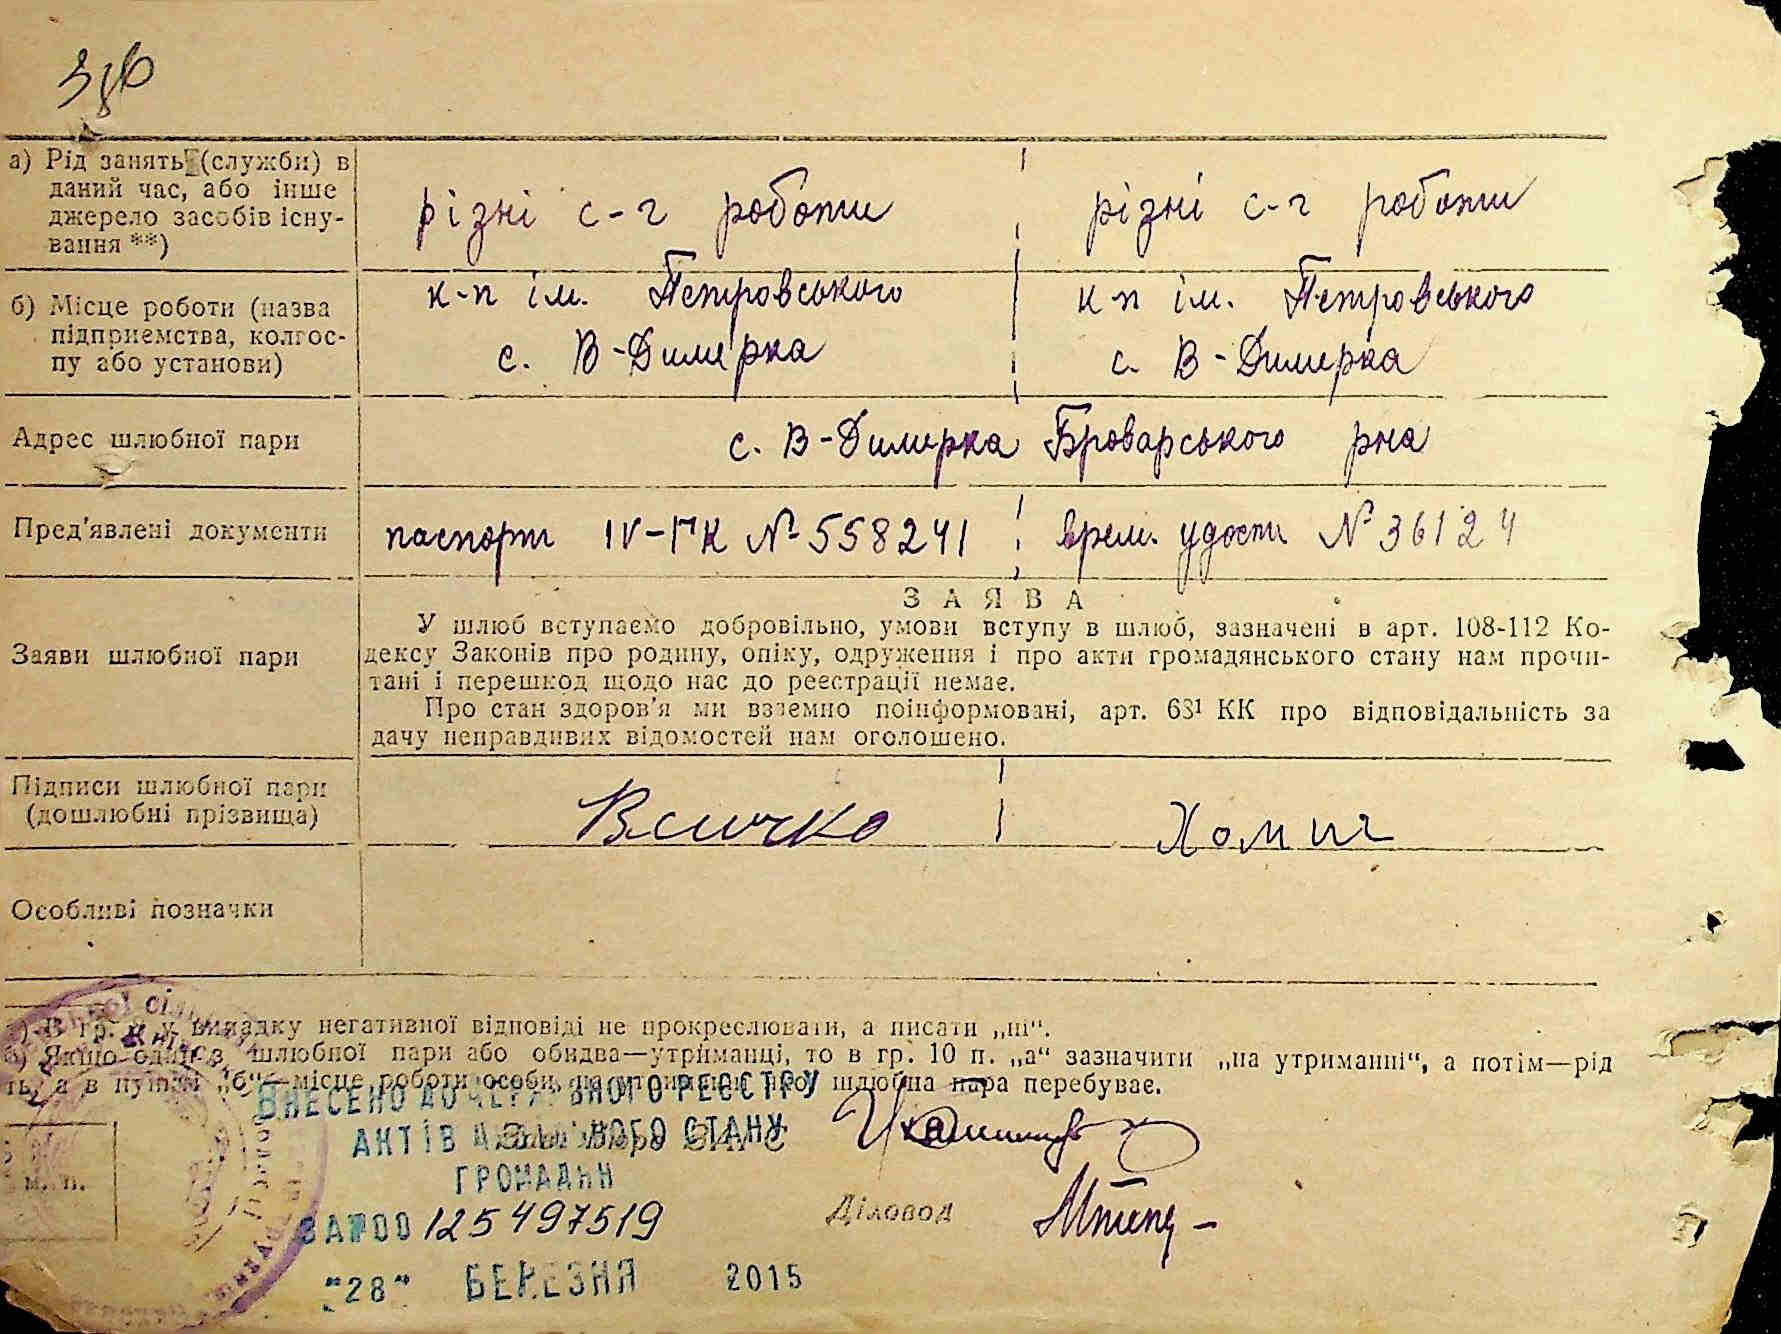 а) Рід занять (служби) в
даний час, або інше
джерело засобів існу-
вання **)
різні с-г роботи
різні с-г роботи
б) Місце роботи (назва
підприємства, колгос-
пу або установи)
к-п ім. Петровського
с. В-Димерка
к-п ім. Петровського
с. В-Димерка
Адрес шлюбної пари
с. В-Димерка Броварського рна
Пред'явлені документи
паспорт IV-ГК № 558241
врем. удост № 36124
Заяви шлюбної пари
ЗАЯВА
У шлюб вступаємо добровільно, умови вступу в шлюб, зазначені в арт. 108-112 Ко-
дексу Законів про родину, опіку, одруження і про акти громадянського стану нам прочи-
тані і перешкод щодо нас до реєстрації немає.
Про стан здоров'я ми взаємно поінформовані, арт. 68¹ КК про відповідальність за
дачу неправдивих відомостей нам оголошено.
Підписи шлюбної пари
(дошлюбні прізвища)
Хомич
Особливі позначки
В гр. у випадку негативної відповіді не прокреслювати, а писати „ні".
Якщо один з шлюбної пари або обидва—утриманці, то в гр. 10 п. „а" зазначити „на утриманні", а потім—рід
а в пункті „б"—місце роботи особи, на утриманні якої шлюбна пара перебуває.
ВНЕСЕНО ДО ДЕРЖАВНОГО РЕЄСТРУ
АКТІВ ЦИВІЛЬНОГО СТАНУ
ГРОМАДЯН
ЗА №00125497519
"28" БЕРЕЗНЯ 2015
М. П.
Діловод